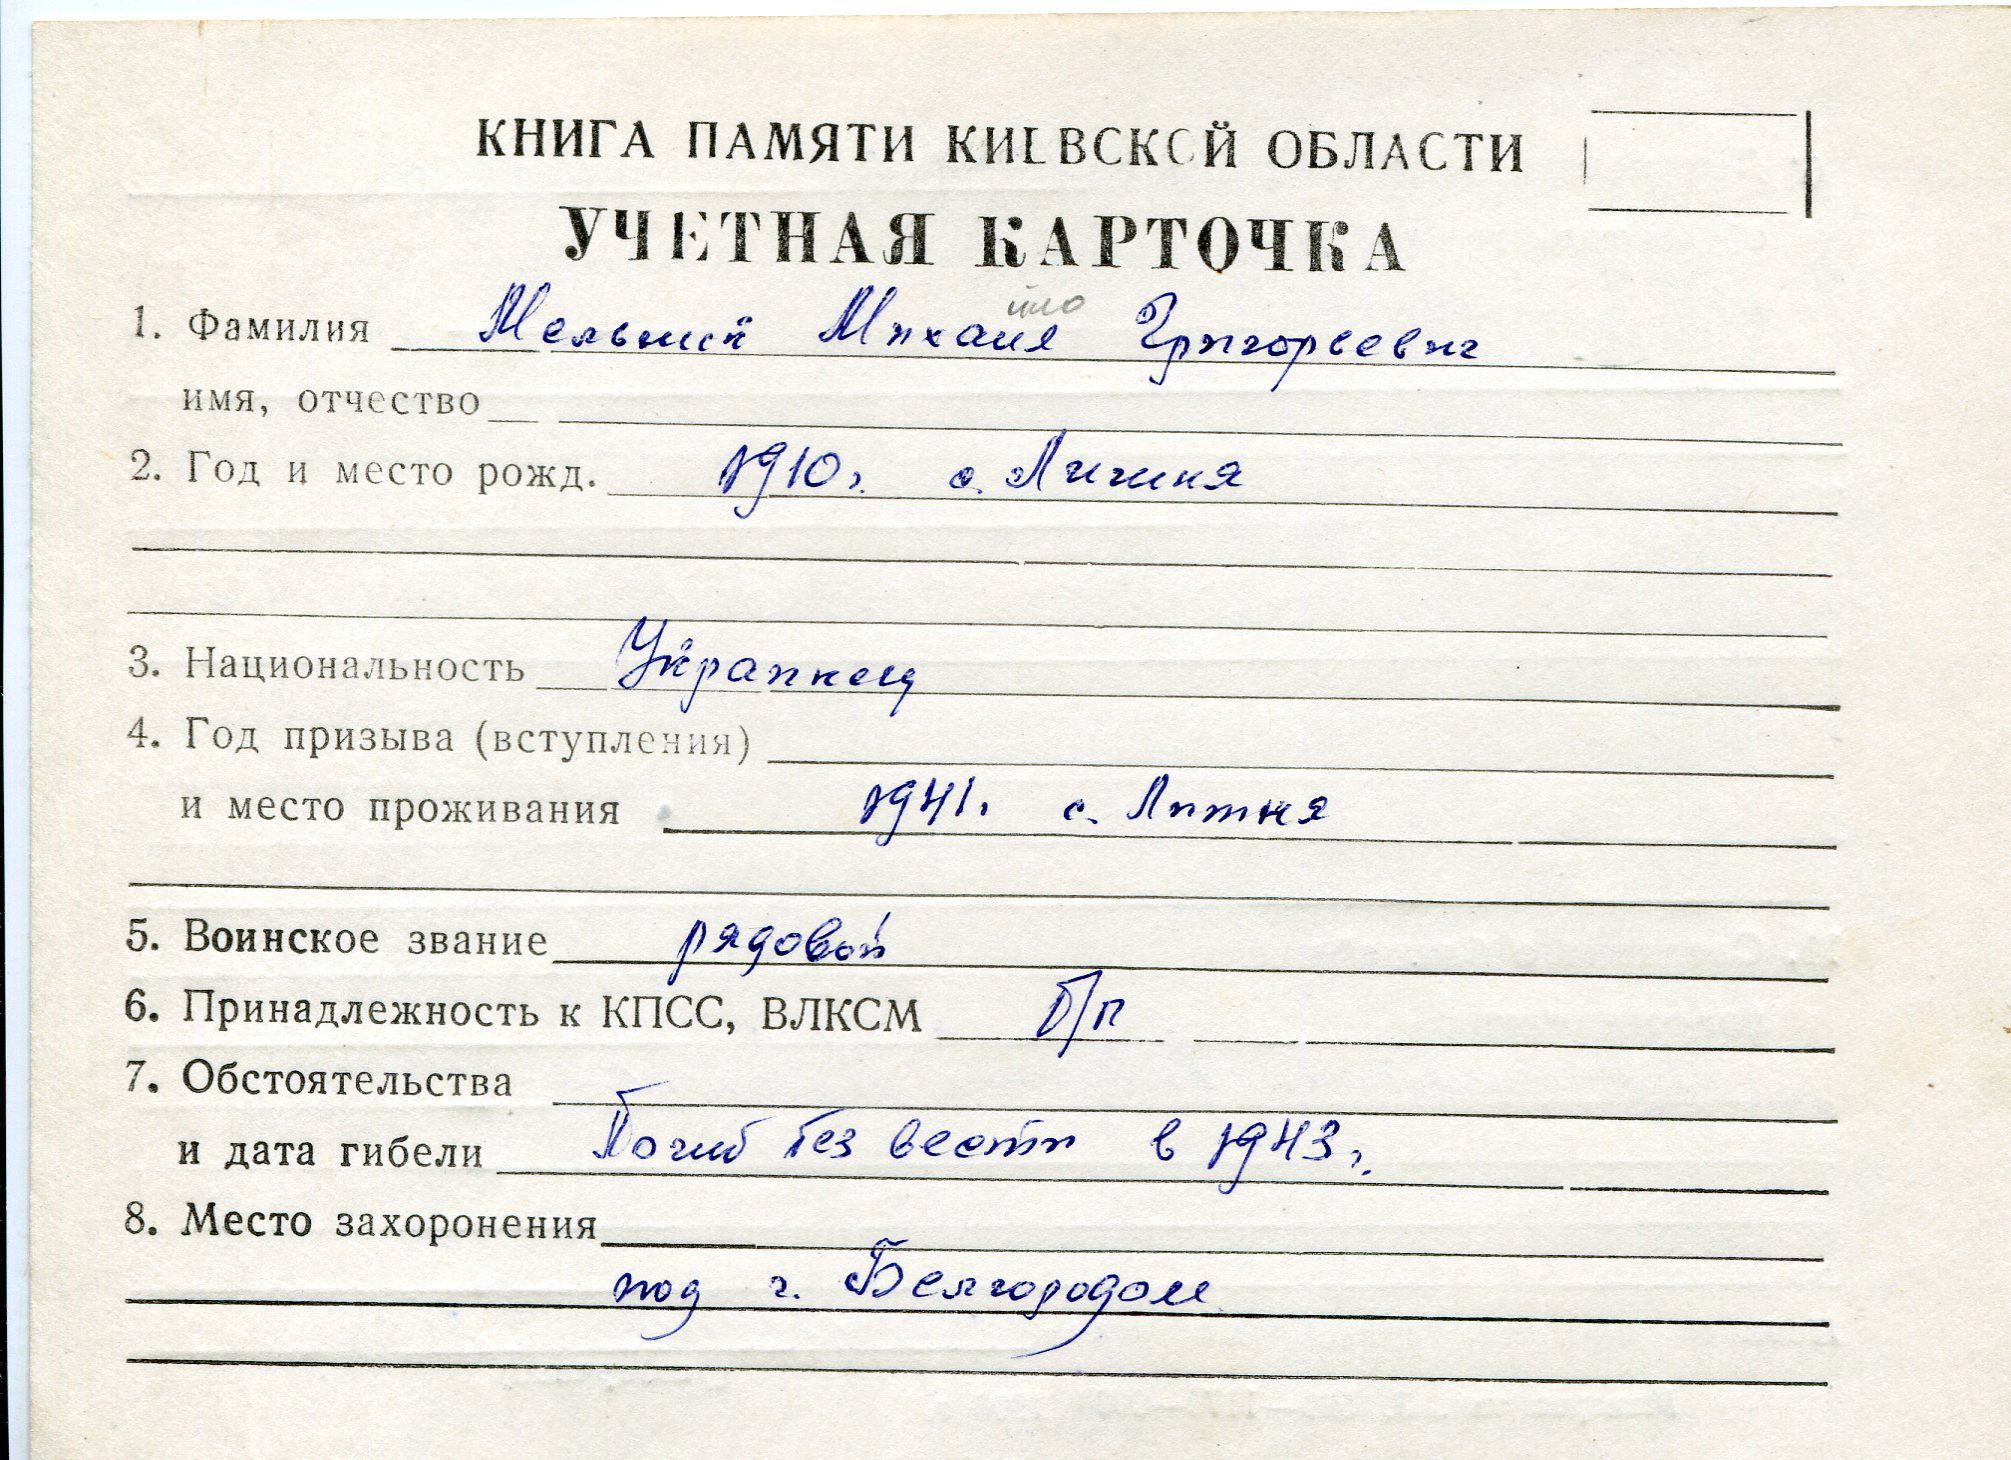 КНИГА ПАМЯТИ КИЕВСКОЙ ОБЛАСТИ
УЧЕТНАЯ КАРТОЧКА
йло
1. Фамилия Мельник Михаил Григорьевич
имя, отчество
2. Год и место рожд. 1910 г. с.
3. Национальность Украинец
4. Год призыва (вступления)
и место проживания 1941 г. с. Литня
5. Воинское звание рядовой
6. Принадлежность к КПСС, ВЛКСМ б/п
7. Обстоятельства
и дата гибели Погиб без вести в 1943 г.
8. Место захоронения
под г. Белгородом